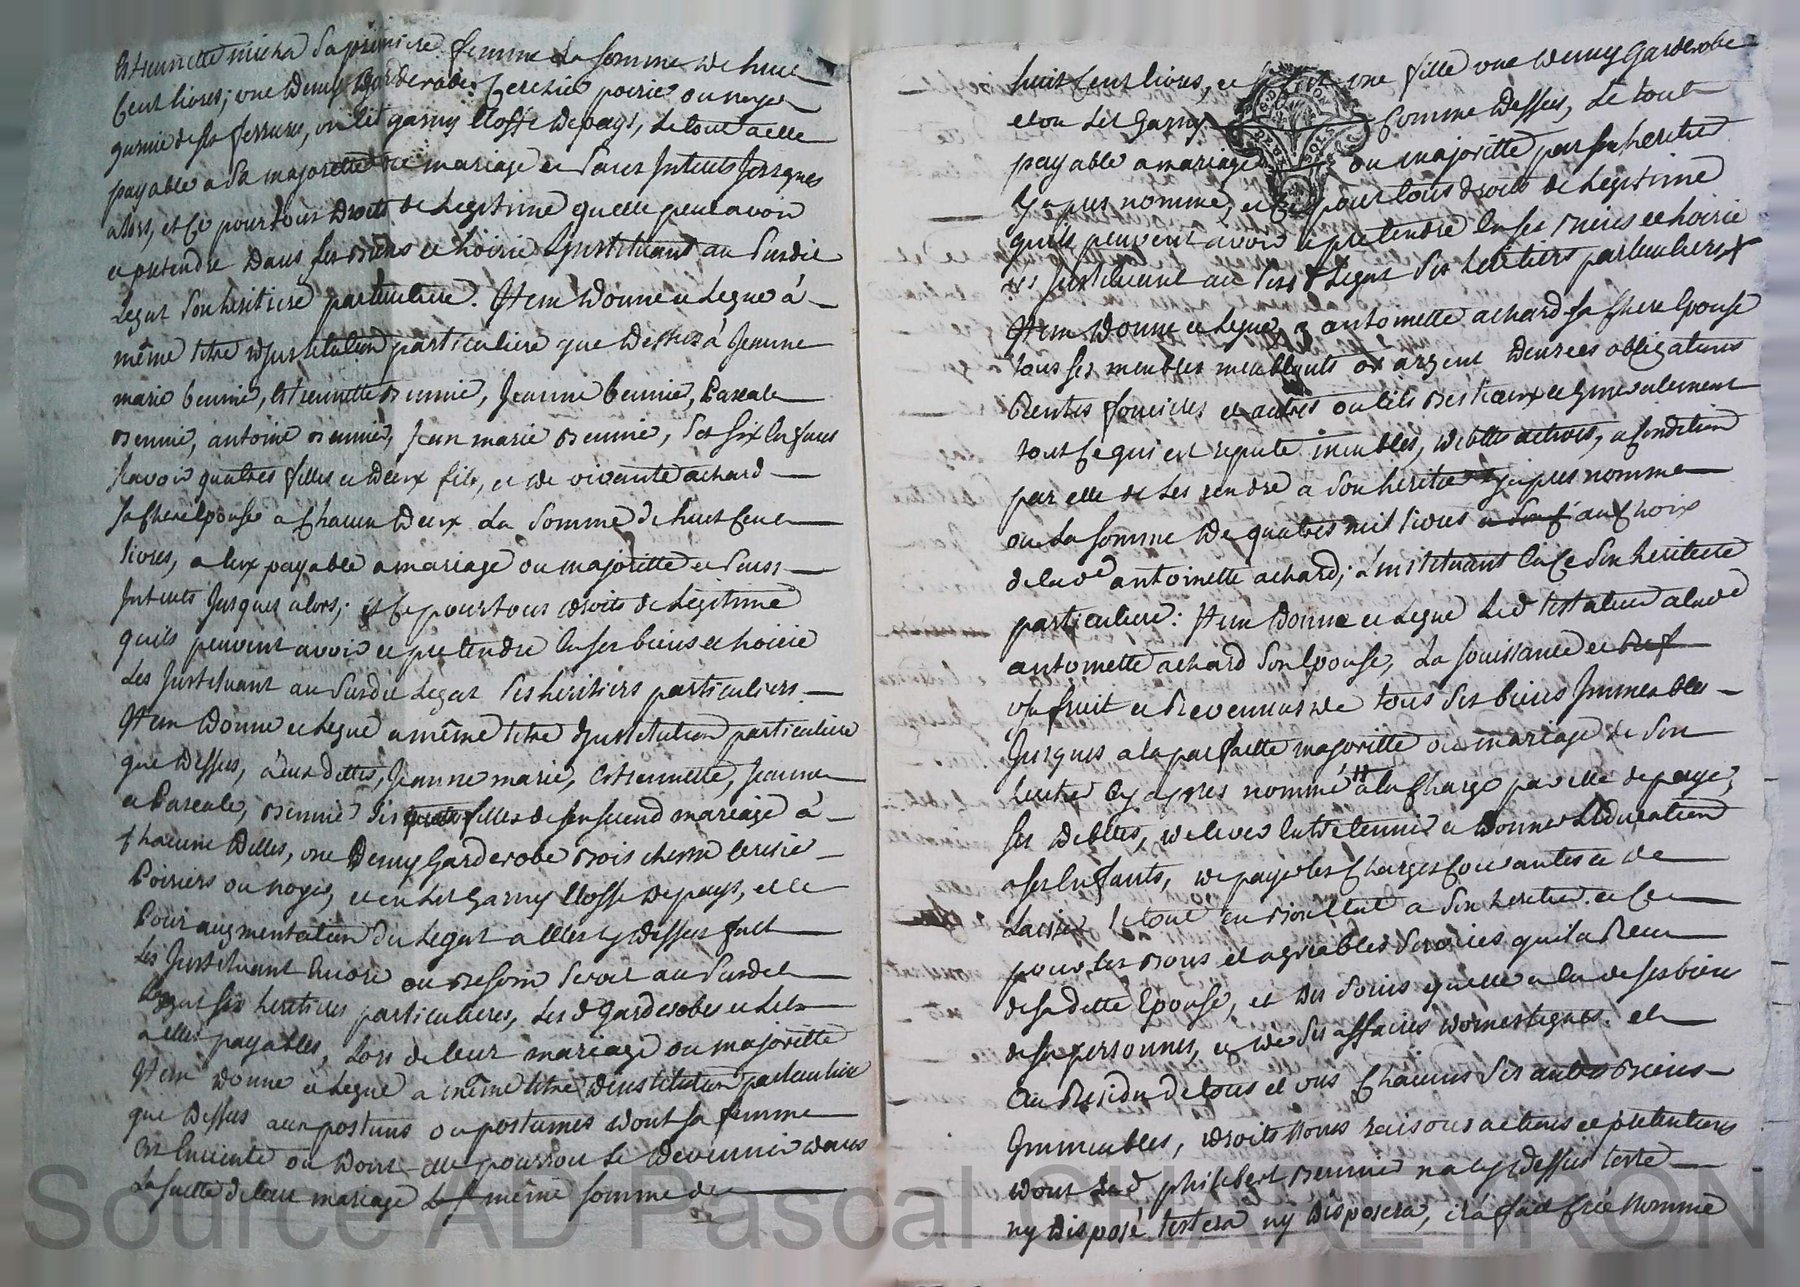 Estiennette micha Sa premiere femme La somme de huit
Cent livres; une Demy Garderobe Cerizier poirier ou noyer
garnie de sa ferrure, un lit garny Etoffe de pays, Le tout a elle
payable a Sa majoritté ou mariage et Sans Interets Jusques
alors, et Ce pour tous Droits de Legitime quelle peut avoir
et pretendre Dans ses Biens et hoirie L'Instituant au Surdit
Legat Son heritiere particuliere. Item Donne et Legue à
même titre d'Institution particuliere que Dessus à Jeanne
marie bennié, Estiennette Bennié, Jeanne bennié, Pascale
Bennié, antoine Bennié, Jean marie Bennié, Ses six Enfans
Savoir quatres filles et Deux fils, et de vivante achard
sa Chere Epouse a Chacun Deux La Somme de huit Cent
livres, a Eux payable a mariage ou majoritté et Sans
Interets Jusques alors; et Ce pour tous droits de Legitime
quils peuvent avoir et pretendre En ses biens et hoirie
Les Instituant au Surdit Legat Ses heritiers particuliers
Item Donne et Legue a même titre d'Institution particuliere
que Dessus, à Sus dittes, Jeanne marie, Estiennette, Jeanne
et Pascale, Bennié Ses quatre filles de son second mariage à
Chacune Delles, une Demy Garderobe Bois chesne Cerisié
Poiriers ou noyer, et un Lit Garny Etoffe de pays, et Ce
Pour augmentation du Legat a Elles cy Dessus fait
Les Instituant Encore ou Besoin Seroit au Surdit
Legat Ses heritieres particulieres, Les d Garderobes et Lits
a Elles payables, Lors de leur mariage ou majoritté
Item Donne et Legue a même titre D'institution particuliere
que Dessus aux postums ou postumes Dont Sa femme
Est Enceinte ou Dont Elle pourroit Le Devenir Dans
La Suitte de leur mariage La même Somme de
huit Cent livres, et une fille une Demy Garderobe
et un Lit Garny Comme Dessus, Le tout
payable a mariage ou majoritté par Son heritié
Cy apres nommé, et Ce pour tous droits de Legitime
quils peuvent avoir et pretendre En Ses Biens et hoirie
Les Instituant au Surd Legat Ses heritiers particuliers
Item Donne et Legue a antoinette achard sa Chere Epouse
tous ses meubles meublants or argent Denrées obligations
Rentes foncieres et autres outils Bestiaux et Generalement
tout Ce qui est reputé meubles, debttes actives, a Condition
par elle de Les rendre a Son heritié Cy apres nommé
ou La Somme De quatres mil livres au Choix
de lad.e antoinette achard; L'instituant En Ce Son heritiere
particuliere: Item Donne et Legue Led testateur a lad.e
antoinette achard Son Epouse, La Jouissance et
usufruit et Revennus De tous Ses biens Immeubles
Jusques a la parfaitte majoritté ou mariage de Son
heritié Cy apres nommé a la Charge par elle de payer
Ses debttes, delever Entretennir et Donner L'Education
a Ses Enfants, de payer les Charges Courantes et de
Laisser Le tout En Bon Etat a Son heritié. et Ce
pour les Bons et agreables Services quil a Recu
de sa dette Epouse, et Des Soins quelle a Eu de ses biens
de sa personne, et de Ses affaires domestiques. et
Au Residu de tous et uns Chacuns Ses autres Biens
Immeubles, droits noms raisons actions et pretentions
dont Led philibert Bennié na Cy dessus testé
ny Disposé testera ny Disposera, il a fait Créé Nommé
Source AD Pascal CHAREYRON